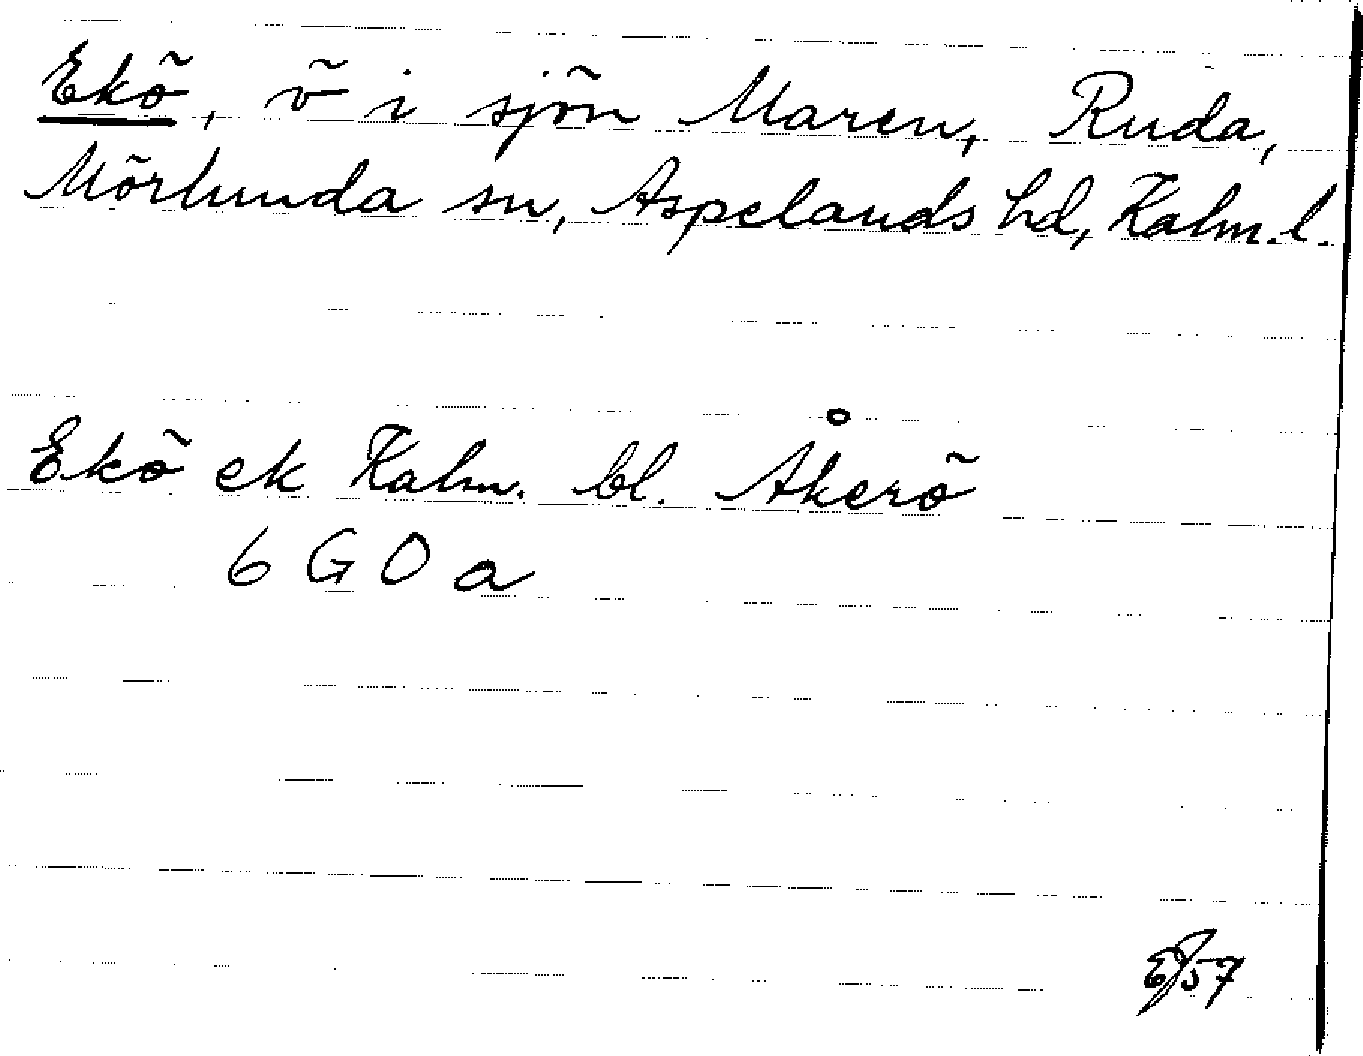 Ekö, ö i sjön Maren, Ruda,
Mörlunda sn, Aspelands hd, Kalm. l.
Ekö ek Kalm. bl. Åkerö
6 G O a
/57